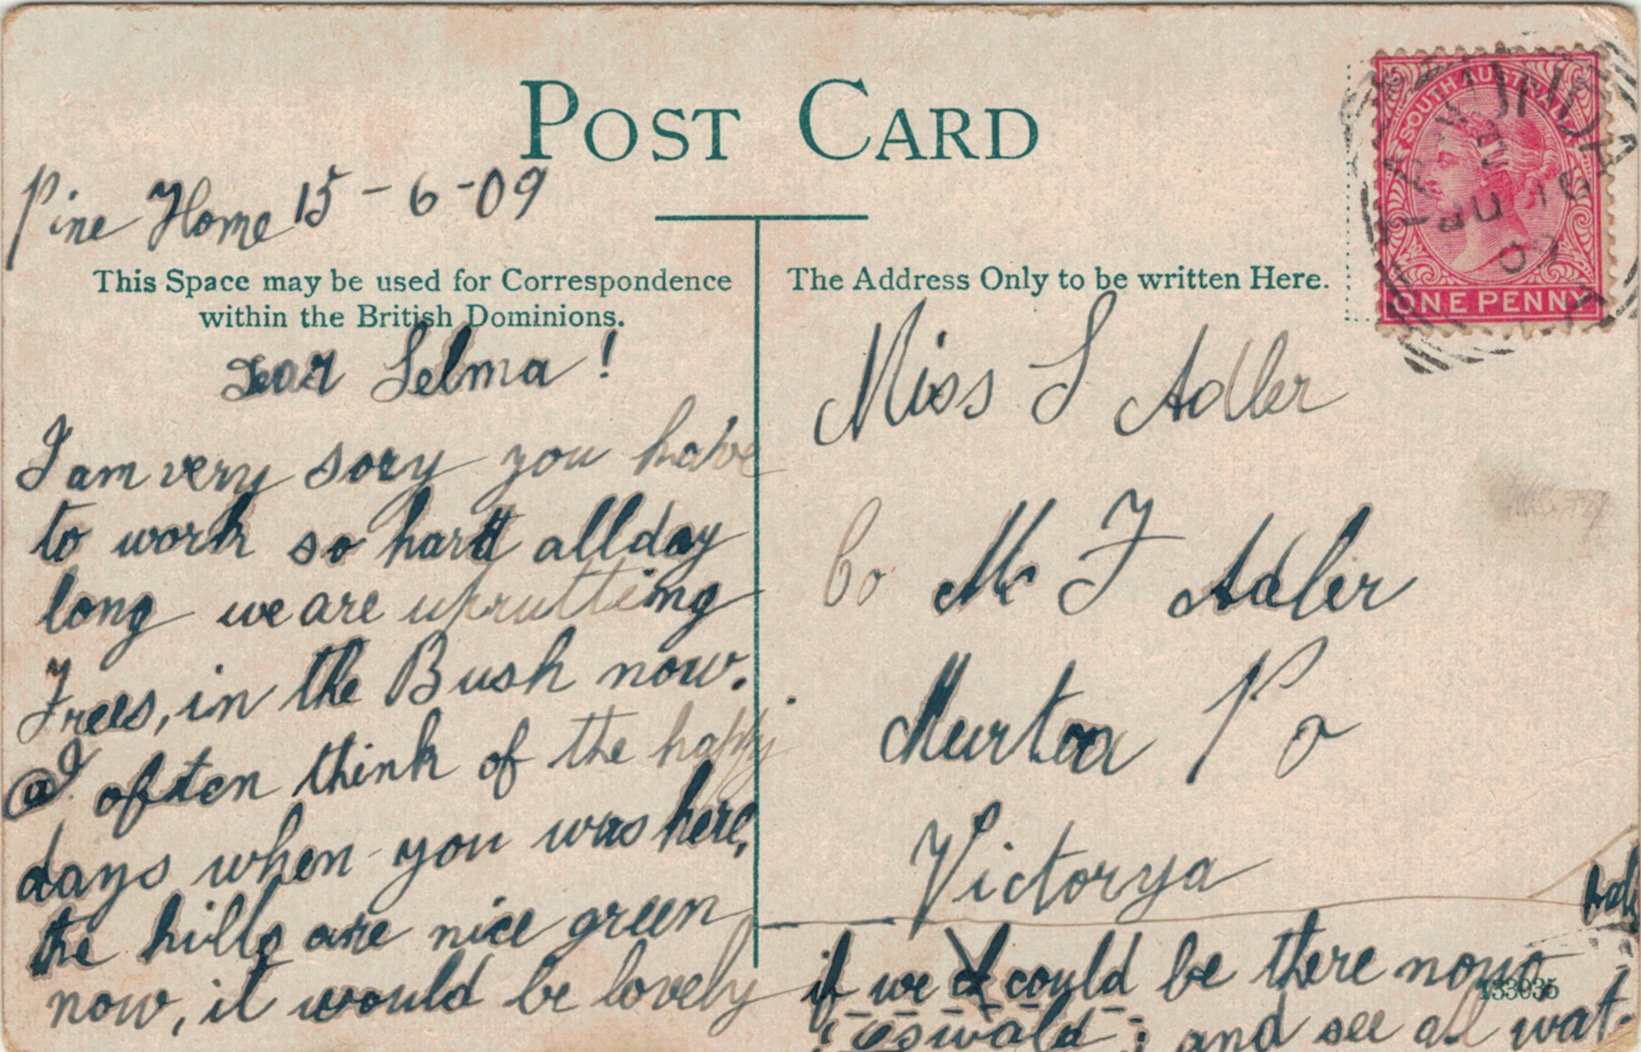 POST CARD
Pine Home 15-6-09
This Space may be used for Correspondence
within the British Dominions.
Dear Selma!
I am very sory you have
to work so hard allday
long we are uprutting
Trees, in the Bush now.
I often think of the happy
days when you was here,
the hills are nice green
now, it would be lovely
SOUTH AUSTRALIA
ONE PENNY
TANUNDA
The Address Only to be written Here.
Miss S Adler
Co Mr F Adler
Murtoa Po
Victorya
if we could be there now
133035
oswald ; and see al wat-